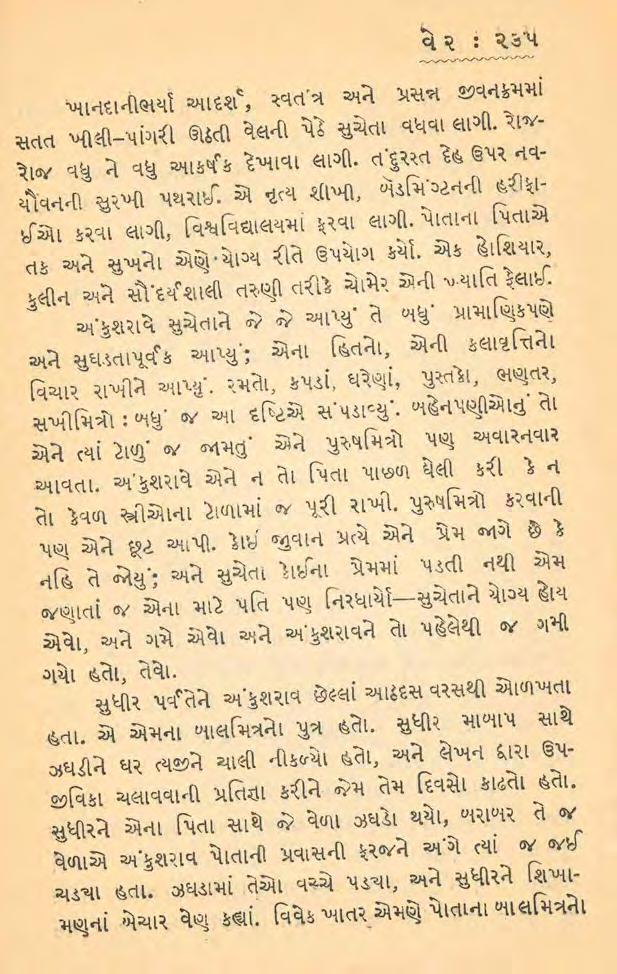 વેર : ૨૩૫
ખાનદાનીભર્યા આદર્શ, સ્વતંત્ર અને પ્રસન્ન જીવનક્રમમાં
સતત ખીલી–પાંગરી ઊઠતી વેલની પેઠે સુચેતા વધવા લાગી. રોજ-
રોજ વધુ ને વધુ આકર્ષક દેખાવા લાગી. તંદુરસ્ત દેહ ઉપર નવ-
યૌવનની સુરખી પથરાઈ. એ નૃત્ય શીખી, બૅડમિંગ્ટનની હરીફા-
ઈઓ કરવા લાગી, વિશ્વવિદ્યાલયમાં ફરવા લાગી. પોતાના પિતાએ
તક અને સુખનો એણે યોગ્ય રીતે ઉપયોગ કર્યો. એક હોશિયાર,
કુલીન અને સૌંદર્યશાલી તરુણી તરીકે ચોમેર એની ખ્યાતિ ફેલાઈ.
અંકુશરાવે સુચેતાને જે જે આપ્યું તે બધું પ્રામાણિકપણે
અને સુઘડતાપૂર્વક આપ્યું; એના હિતનો, એની કલાવૃત્તિનો
વિચાર રાખીને આપ્યું. રમતો, કપડાં, ઘરેણાં, પુસ્તકો, ભણતર,
સખીમિત્રો : બધું જ આ દૃષ્ટિએ સંપડાવ્યું. બહેનપણીઓનું તો
એને ત્યાં ટોળું જ જામતું એને પુરુષમિત્રો પણ અવારનવાર
આવતા. અંકુશરાવે એને ન તો પિતા પાછળ ઘેલી કરી કે ન
તો કેવળ સ્ત્રીઓના ટોળામાં જ પૂરી રાખી. પુરુષમિત્રો કરવાની
પણ એને છૂટ આપી. કોઈ જુવાન પ્રત્યે એને પ્રેમ જાગે છે કે
નહિ તે જોયું; અને સુચેતા કોઈના પ્રેમમાં પડતી નથી એમ
જણાતાં જ એના માટે પતિ પણ નિરધાર્યો—સુચેતાને યોગ્ય હોય
એવો, અને ગમે એવો અને અંકુશરાવને તો પહેલેથી જ ગમી
ગયો હતો, તેવો.
સુધીર પર્વતેને અંકુશરાવ છેલ્લાં આઠદસ વરસથી ઓળખતા
હતા. એ એમના બાલમિત્રનો પુત્ર હતો. સુધીર માબાપ સાથે
ઝઘડીને ઘર ત્યજીને ચાલી નીકળ્યો હતો, અને લેખન દ્વારા ઉપ-
જીવિકા ચલાવવાની પ્રતિજ્ઞા કરીને જેમ તેમ દિવસો કાઢતો હતો.
સુધીરને એના પિતા સાથે જે વેળા ઝઘડો થયો, બરાબર તે જ
વેળાએ અંકુશરાવ પોતાની પ્રવાસની ફરજને અંગે ત્યાં જ જઈ
ચડ્યા હતા. ઝઘડામાં તેઓ વચ્ચે પડ્યા, અને સુધીરને શિખા-
મણનાં બેચાર વેણ કહ્યાં. વિવેક ખાતર એમણે પોતાના બાલમિત્રનો